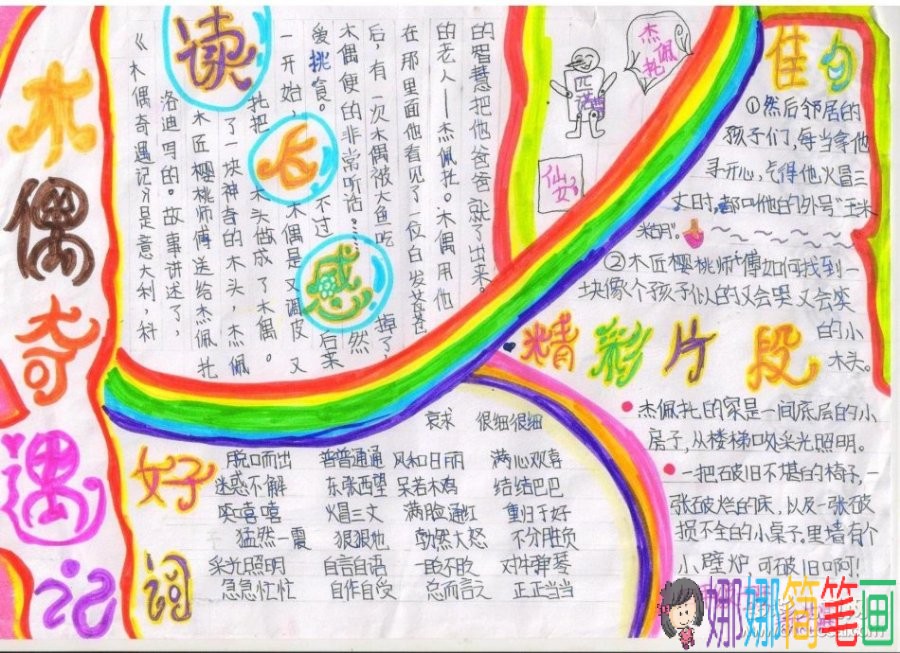 木偶奇遇记
读后感
《木偶奇遇记》是意大利，科
洛迪写的。故事讲述了，
木匠樱桃师傅送给杰佩托
了一块神奇的木头，杰佩
托把木头做成了木偶。
一开始，木偶是又调皮又
爱挑食。不过后来
木偶便的非常听话……然
后，有一次木偶被大鱼吃掉了，
在那里面他看见了一位白发苍苍
的老人——杰佩托。木偶用他
的智慧把他爸爸救了出来。
杰佩托
匹诺曹
仙女
佳句
①然后邻居的
孩子们，每当拿他
寻开心，气得他火冒三
丈时，都叫他的外号“玉米
糊”。
②木匠樱桃师傅如何找到一
块像个孩子似的又会哭又会笑
的小
木头。
精彩片段
杰佩托的家是一间底层的小
房子，从楼梯口收采光照明。
一把破旧不堪的椅子，一
张破烂的床，以及一张破
损不全的小桌子。里墙有个
小壁炉，可破旧啊！
好词
哀求 很细很细
脱口而出 普普通通 风和日丽 满心欢喜
迷惑不解 东张西望 呆若木鸡 结结巴巴
笑嘻嘻 火冒三丈 满脸通红 重归于好
猛然一震 狠狠地 勃然大怒 不分胜负
采光照明 自言自语 一败不败 对牛弹琴
急急忙忙 自作自受 总而言之 正正当当
娜娜简笔画